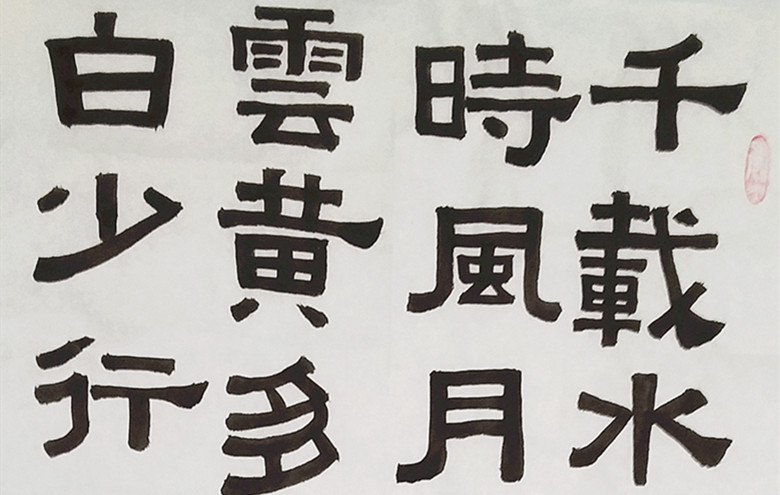 千載水
時風月
雲黄多
白少行